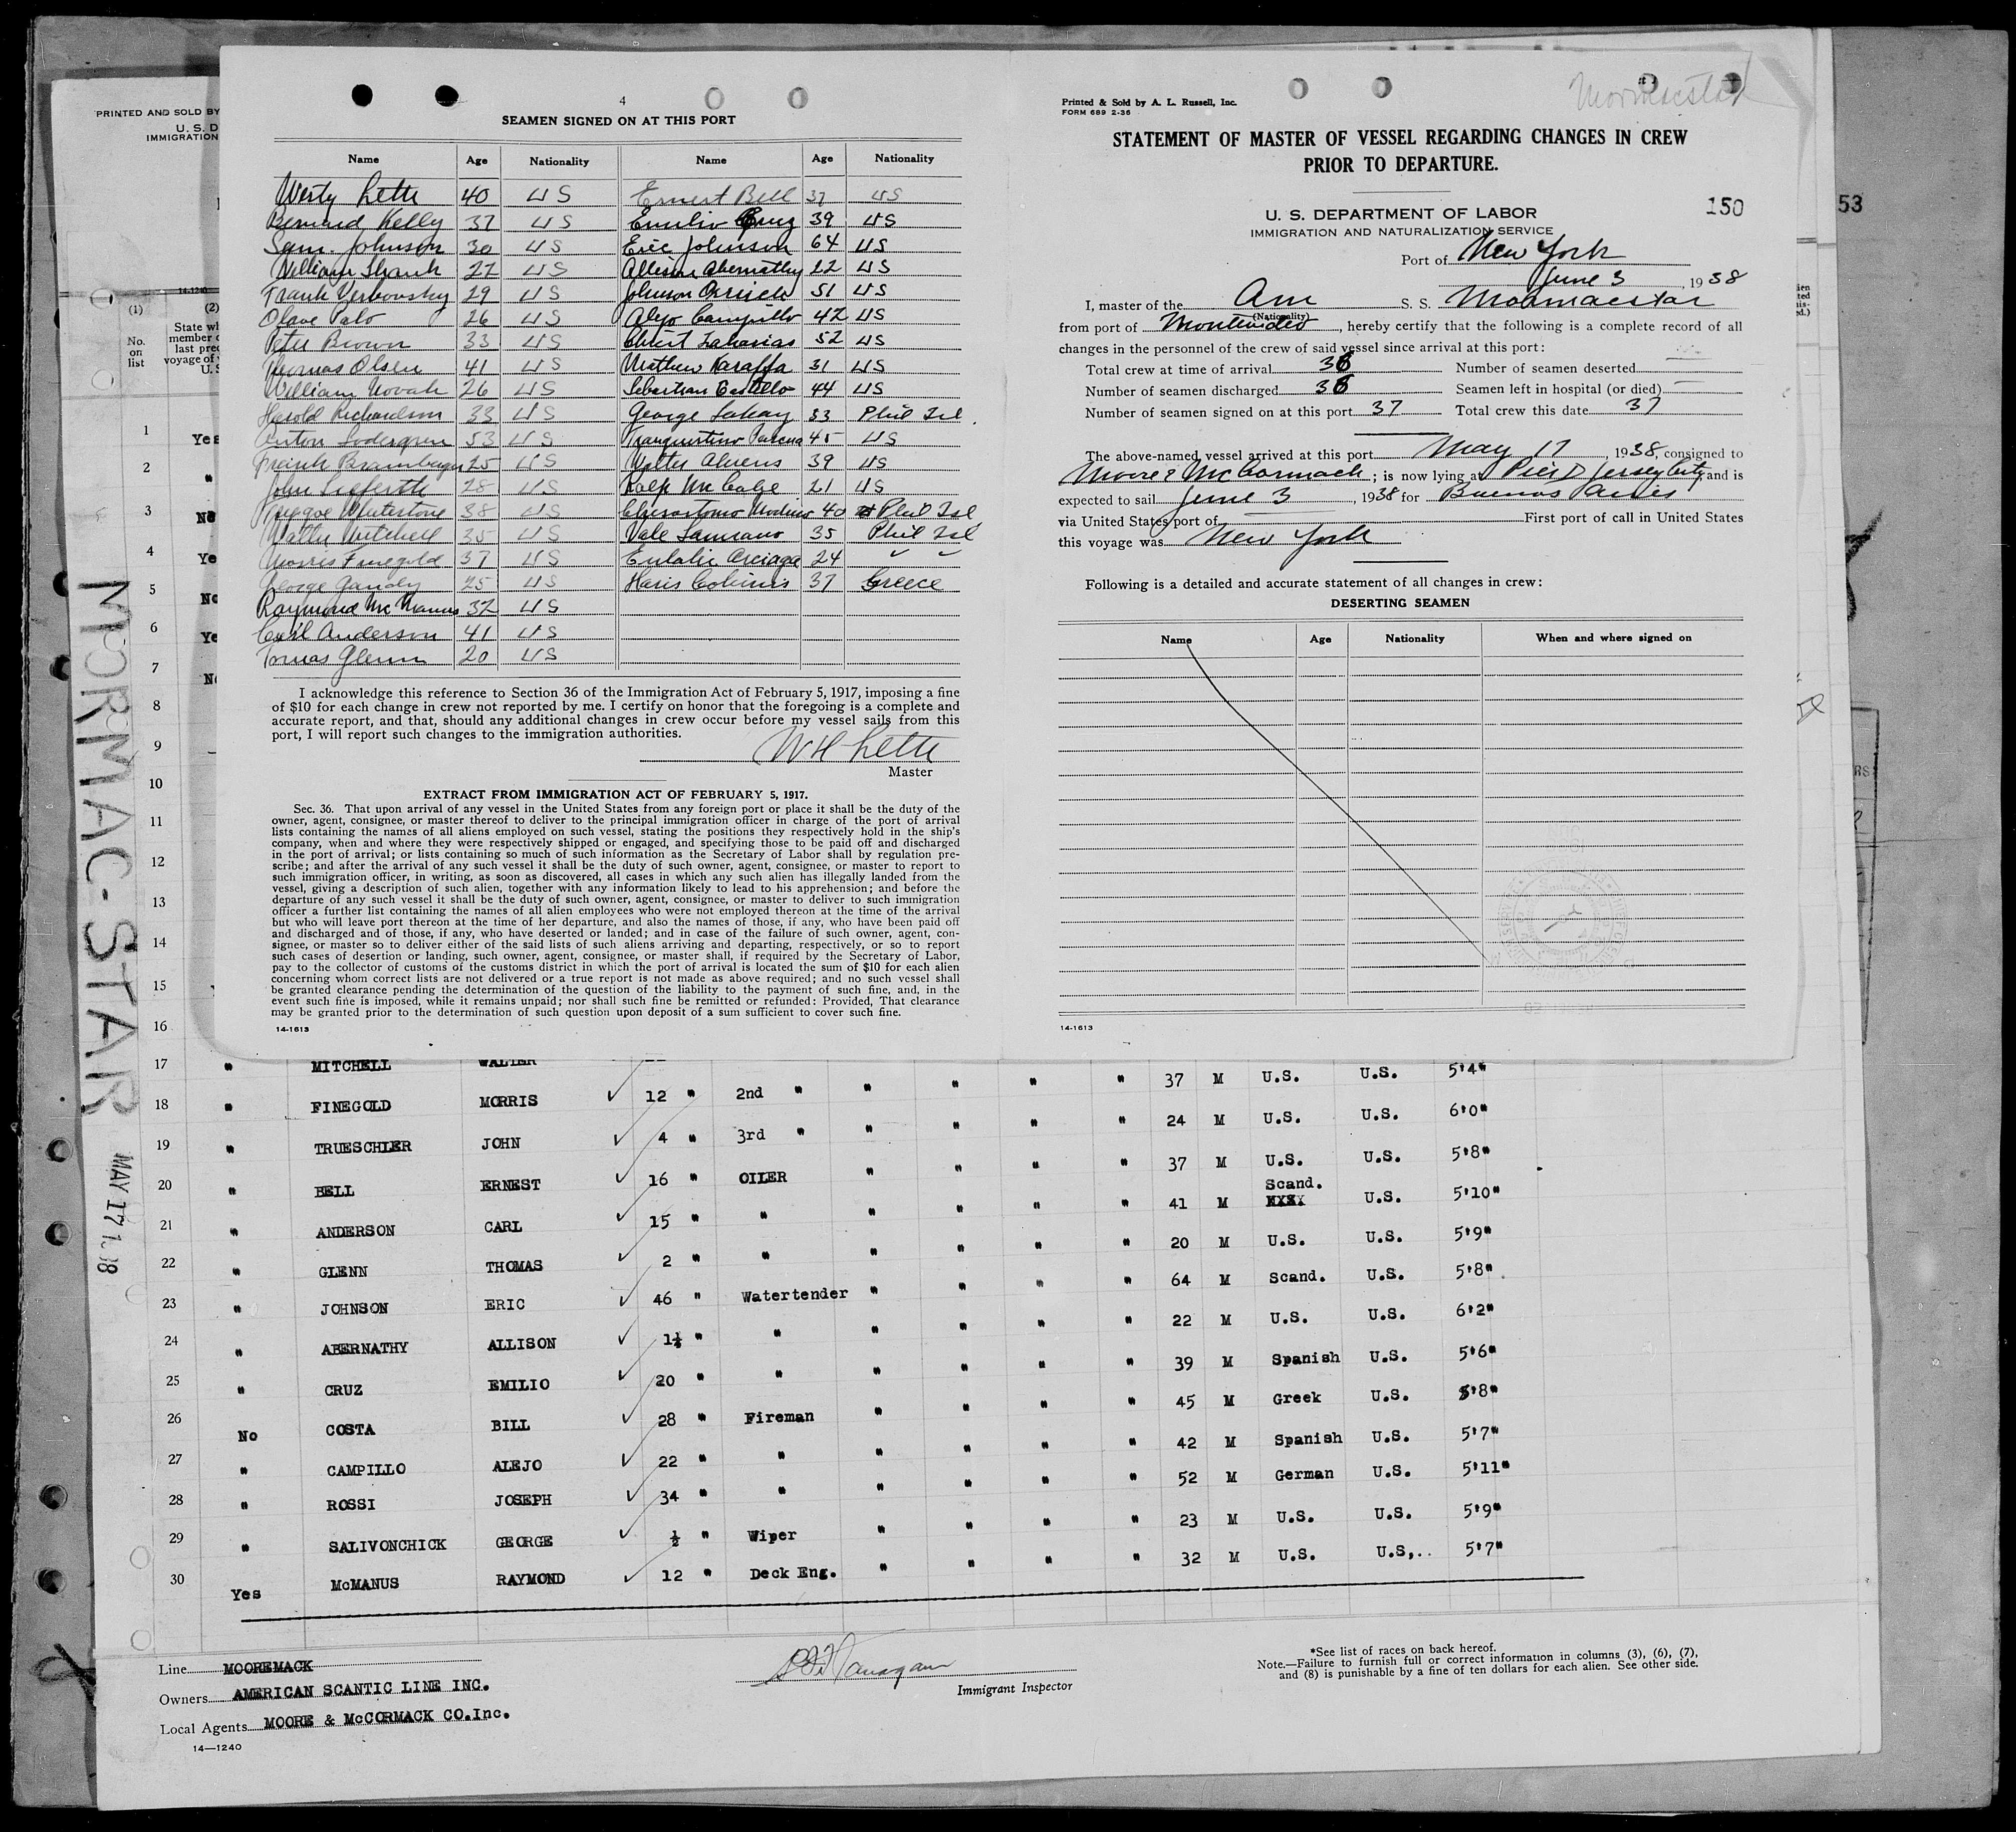 4
SEAMEN SIGNED ON AT THIS PORT
Name Age Nationality Name Age Nationality
Westy Lette 40 US Ernest Bell 37 US
Bernard Kelly 37 US Emilio Cruz 39 US
Sam. Johnson 30 US Eric Johnson 64 US
William Shank 27 US Allison Abernathy 22 US
Frank Verbovsky 29 US Johnson 51 US
Olave Palo 26 US Alejo Campillo 42 US
Peter Brown 33 US Zaharias 52 US
Thomas Olsen 41 US Mathew Karaffa 31 US
William Novak 26 US Sebastian Castello 44 US
Harold Richardson 33 US George 33 Phil Isl.
Anton Sodergren 53 US 45 US
Frank 25 US Walter Ahrens 39 US
John 28 US Ralf McCabe 21 US
38 US 40 Phil Isl
Walter Mitchell 35 US Vale 35 Phil Isl
Morris Finegold 37 US 24 " "
George Gandy 25 US Haris 37 Greece
Raymond McManus 32 US
Carl Anderson 41 US
Tomas Glenn 20 US
I acknowledge this reference to Section 36 of the Immigration Act of February 5, 1917, imposing a fine
of $10 for each change in crew not reported by me. I certify on honor that the foregoing is a complete and
accurate report, and that, should any additional changes in crew occur before my vessel sails from this
port, I will report such changes to the immigration authorities.
W H Lette
Master
EXTRACT FROM IMMIGRATION ACT OF FEBRUARY 5, 1917.
Sec. 36. That upon arrival of any vessel in the United States from any foreign port or place it shall be the duty of the
owner, agent, consignee, or master thereof to deliver to the principal immigration officer in charge of the port of arrival
lists containing the names of all aliens employed on such vessel, stating the positions they respectively hold in the ship's
company, when and where they were respectively shipped or engaged, and specifying those to be paid off and discharged
in the port of arrival; or lists containing so much of such information as the Secretary of Labor shall by regulation pre-
scribe; and after the arrival of any such vessel it shall be the duty of such owner, agent, consignee, or master to report to
such immigration officer, in writing, as soon as discovered, all cases in which any such alien has illegally landed from the
vessel, giving a description of such alien, together with any information likely to lead to his apprehension; and before the
departure of any such vessel it shall be the duty of such owner, agent, consignee, or master to deliver to such immigration
officer a further list containing the names of all alien employees who were not employed thereon at the time of the arrival
but who will leave port thereon at the time of her departure, and also the names of those, if any, who have been paid off
and discharged and of those, if any, who have deserted or landed; and in case of the failure of such owner, agent, con-
signee, or master so to deliver either of the said lists of such aliens arriving and departing, respectively, or so to report
such cases of desertion or landing, such owner, agent, consignee, or master shall, if required by the Secretary of Labor,
pay to the collector of customs of the customs district in which the port of arrival is located the sum of $10 for each alien
concerning whom correct lists are not delivered or a true report is not made as above required; and no such vessel shall
be granted clearance pending the determination of the question of the liability to the payment of such fine, and, in the
event such fine is imposed, while it remains unpaid; nor shall such fine be remitted or refunded: Provided, That clearance
may be granted prior to the determination of such question upon deposit of a sum sufficient to cover such fine.
14-1613
Mormacstar
Printed & Sold by A. L. Russell, Inc.
FORM 689 2-36
STATEMENT OF MASTER OF VESSEL REGARDING CHANGES IN CREW
PRIOR TO DEPARTURE.
150
U. S. DEPARTMENT OF LABOR
IMMIGRATION AND NATURALIZATION SERVICE
Port of New York
June 3, 1938
I, master of the Am S. S. Mormacstar
(Nationality)
from port of Montevideo, hereby certify that the following is a complete record of all
changes in the personnel of the crew of said vessel since arrival at this port:
Total crew at time of arrival 38 Number of seamen deserted
Number of seamen discharged 38 Seamen left in hospital (or died) —
Number of seamen signed on at this port 37 Total crew this date 37
The above-named vessel arrived at this port May 17, 1938, consigned to
Moore & McCormack; is now lying at Pier D Jersey City, and is
expected to sail June 3, 1938 for Buenos Aires
via United States port of First port of call in United States
this voyage was New York
Following is a detailed and accurate statement of all changes in crew:
DESERTING SEAMEN
Name Age Nationality When and where signed on
14-1613
53
PRINTED AND SOLD BY
U. S. D
IMMIGRATION
14-1240
(1) (2)
No. on list
State wh
member o
last prec
voyage of
U. S
1 Yes
2 "
3 No
4 Ye
5 No
6 Ye
7 No
8
9
10
11
12
13
14
15
16
MORMAC-STAR MAY 17 1938
17 " MITCHELL WALTER
18 " FINEGOLD MORRIS 12 " 2nd " " " " " 37 M U.S. U.S. 5'4"
19 " TRUESCHLER JOHN 4 " 3rd " " " " " 24 M U.S. U.S. 6'0"
20 " BELL ERNEST 16 " OILER " " " " 37 M U.S. U.S. 5'8"
21 " ANDERSON CARL 15 " " " " " " 41 M Scand. U.S. 5'10"
22 " GLENN THOMAS 2 " " " " " " 20 M U.S. U.S. 5'9"
23 " JOHNSON ERIC 46 " Watertender " " " " 64 M Scand. U.S. 5'8"
24 " ABERNATHY ALLISON 1½ " " " " " " 22 M U.S. U.S. 6'2"
25 " CRUZ EMILIO 20 " " " " " " 39 M Spanish U.S. 5'6"
26 No COSTA BILL 28 " Fireman " " " " 45 M Greek U.S. 5'8"
27 " CAMPILLO ALEJO 22 " " " " " " 42 M Spanish U.S. 5'7"
28 " ROSSI JOSEPH 34 " " " " " " 52 M German U.S. 5'11"
29 " SALIVONCHICK GEORGE ½ " Wiper " " " " 23 M U.S. U.S. 5'9"
30 Yes McMANUS RAYMOND 12 " Deck Eng. " " " " 32 M U.S. U.S,.. 5'7"
Line MOOREMACK
Owners AMERICAN SCANTIC LINE INC.
Local Agents MOORE & McCORMACK CO.Inc.
14—1240
Immigrant Inspector
*See list of races on back hereof.
Note.—Failure to furnish full or correct information in columns (3), (6), (7),
and (8) is punishable by a fine of ten dollars for each alien. See other side.